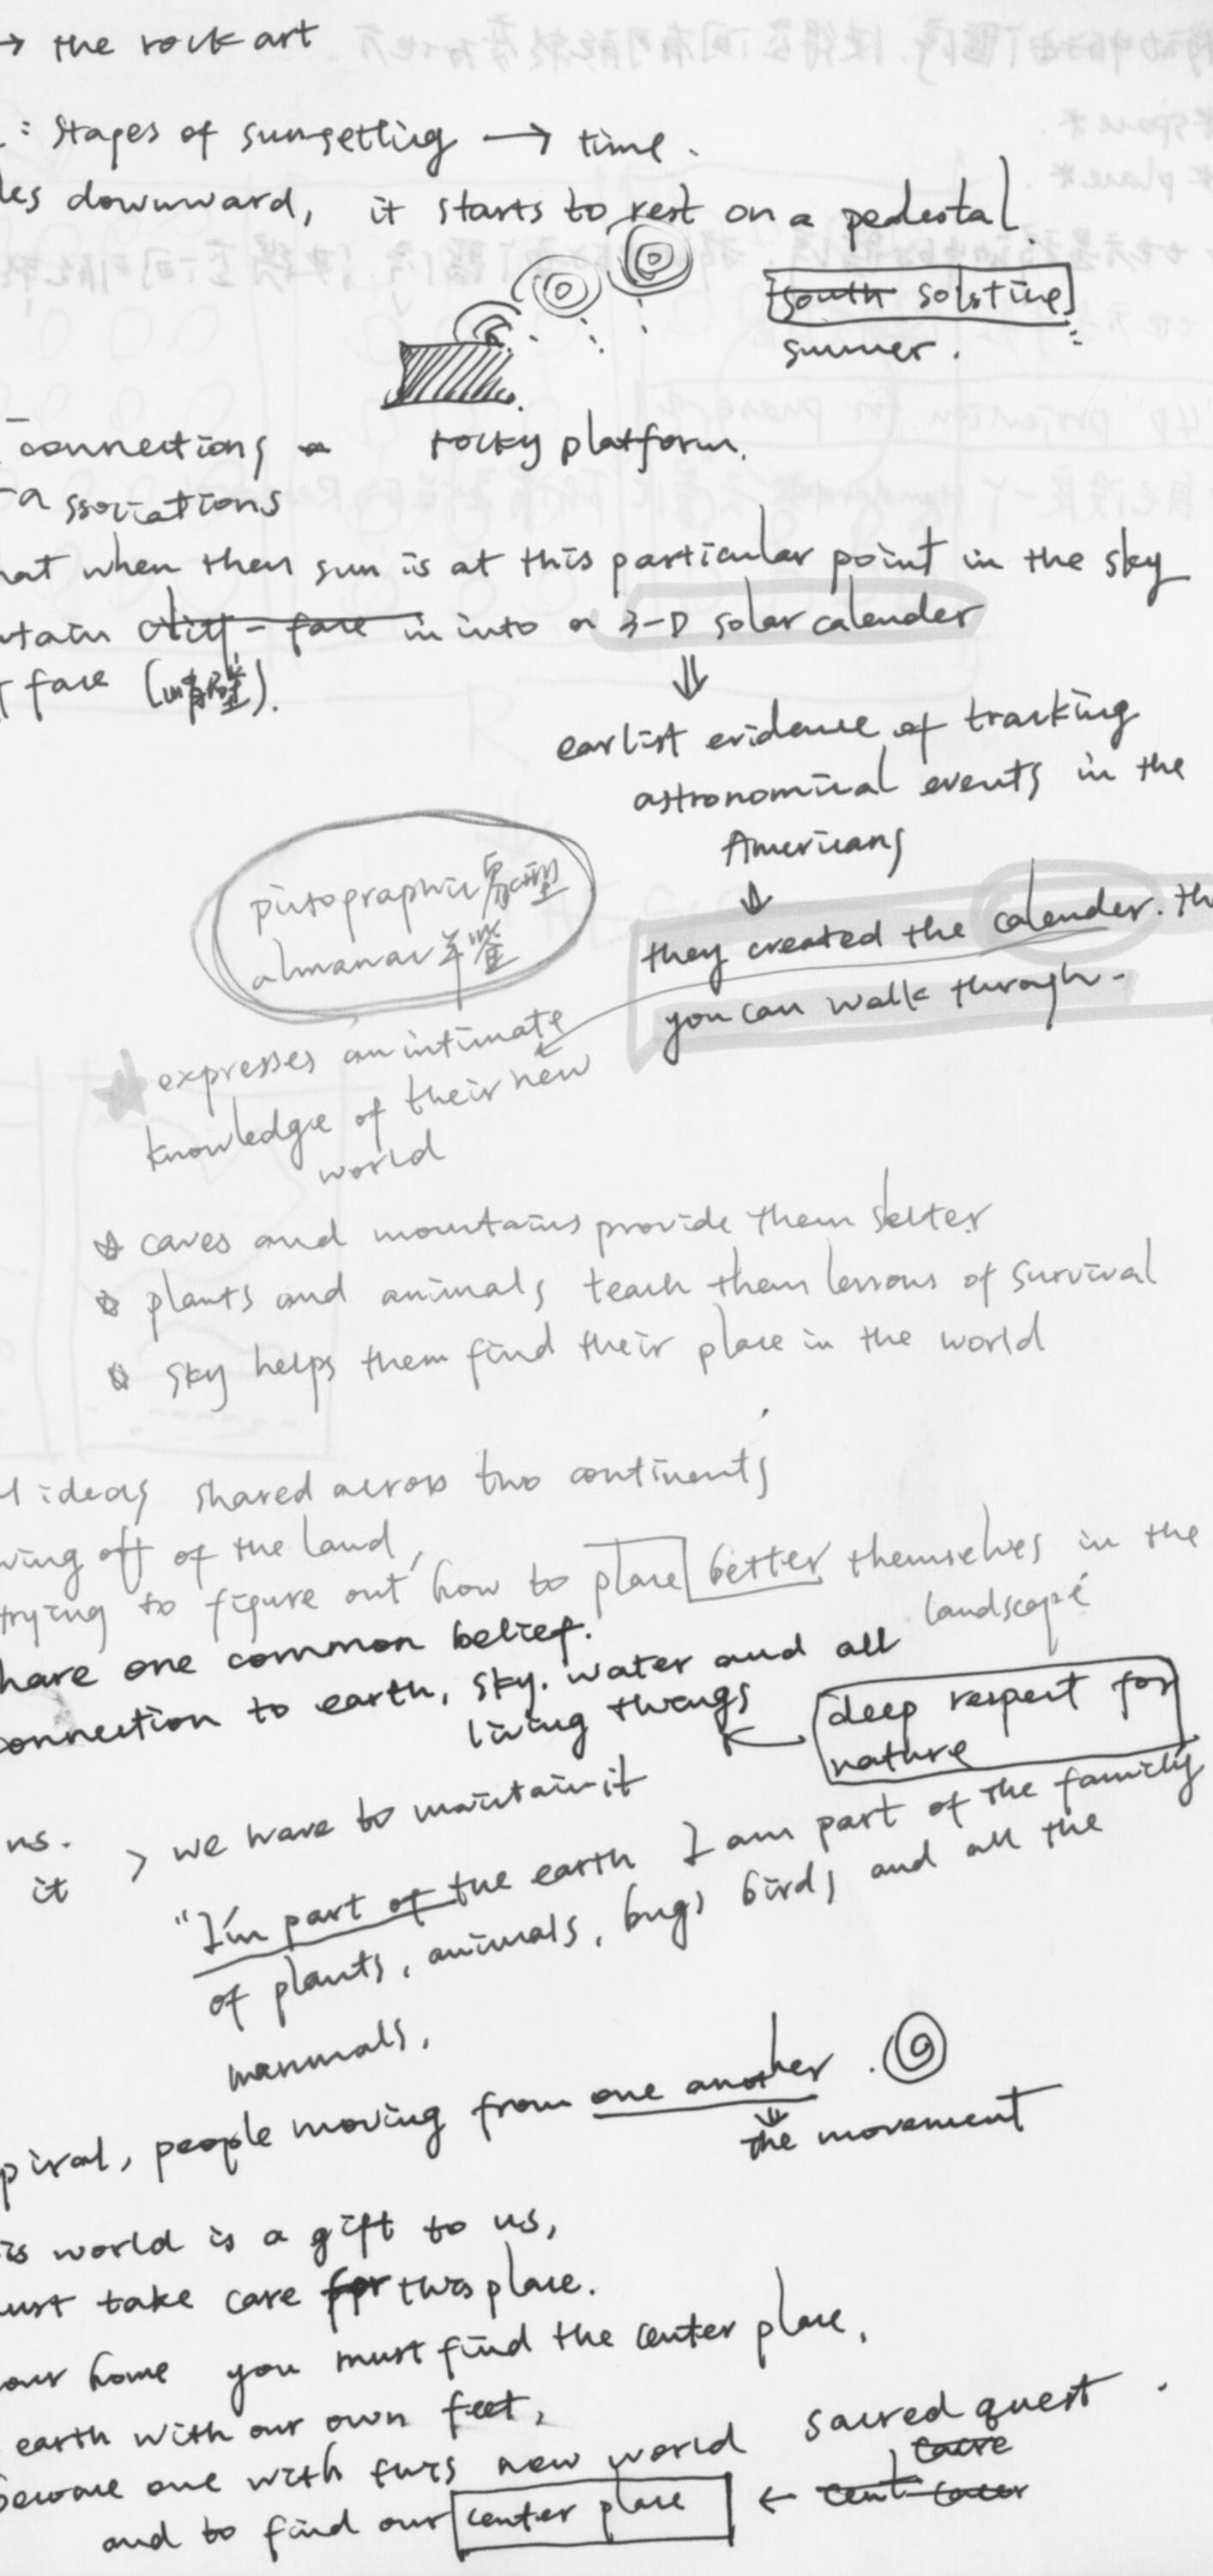 → the rock art
: Stages of sunsetting → time.
les downward, it starts to rest on a pedestal.
south solstice
summer.
connections
rocky platform.
associations
hat when then sun is at this particular point in the sky
ntain cliff-face in into a 3-D solar calender
face (峭壁).
earlist evidence of tracking
astronomical events in the
Americans
pictographic 象型
almanac 年鉴
they created the calender. th
you can walk through-
expresses an intimate
knowledge of their new
world
☆ caves and mountains provide them selter
☆ plants and animals teach them lessons of survival
☆ sky helps them find their place in the world
l ideas shared across two continents
ving off of the land,
trying to figure out how to place better themselves in the
landscape
have one common belief.
onnection to earth, sky. water and all
living things
deep respect for
nature
ns.
it > we have to maintain it
"I'm part of the earth I am part of the family
of plants, animals, bugs birds and all the
mammals.
piral, people moving from one another.
the movement
is world is a gift to us,
ust take care for this place.
our home you must find the center place,
earth with our own feet,
become one with this new world
sacred quest.
and to find our center place ←